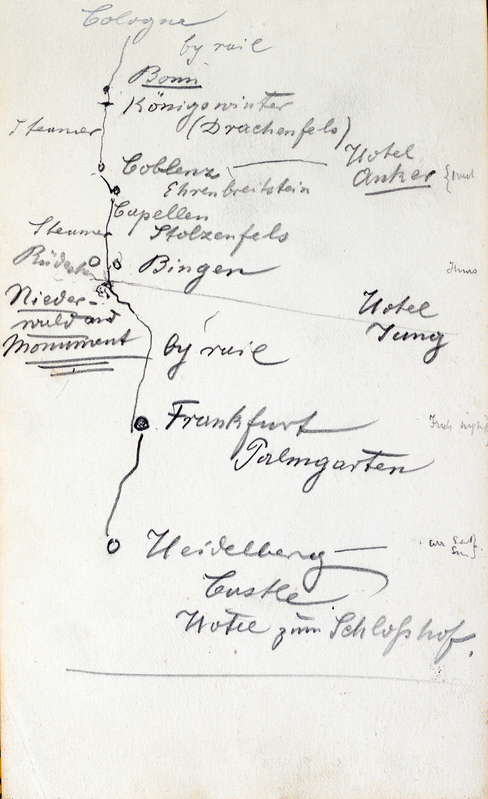 Cologne
by rail
Bonn
Königswinter
Steamer
(Drachenfels)
Coblenz
Hotel
Anker
Ehrenbreitstein
Capellen
Steamer
Stolzenfels
Bingen
Nieder-
wald and
Monument
Hotel
Jung
by rail
Frankfurt
Palmgarten
Heidelberg
Castle
Hotel zum Schloßhof.